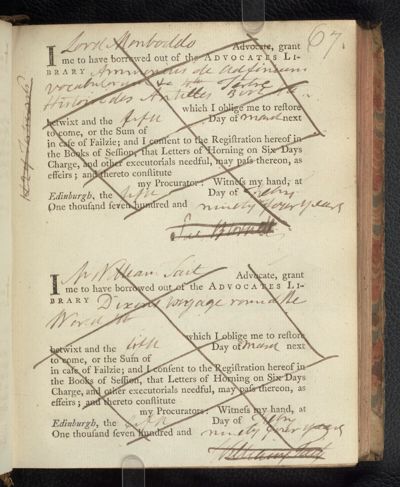 67.
I Lord Monboddo Advocate, grant
me to have borrowed out of the ADVOCATES LI-
BRARY Ammonius de adfinium
vocabulorum &
Histoire des Antilles
which I oblige me to restore
betwixt and the fifth Day of March next
to come, or the Sum of
in case of Failzie; and I consent to the Registration hereof in
the Books of Session, that Letters of Horning on Six Days
Charge, and other executorials needful, may pass thereon, as
effeirs; and thereto constitute
my Procurator: Witness my hand, at
Edinburgh, the fifth Day of
One thousand seven hundred and ninety four years
I Mr William Advocate, grant
me to have borrowed out of the ADVOCATES LI-
BRARY Dixons voyage round the
World
which I oblige me to restore
betwixt and the fifth Day of March next
to come, or the Sum of
in case of Failzie; and I consent to the Registration hereof in
the Books of Session, that Letters of Horning on Six Days
Charge, and other executorials needful, may pass thereon, as
effeirs; and thereto constitute
my Procurator: Witness my hand, at
Edinburgh, the fifth Day of
One thousand seven hundred and ninety four years